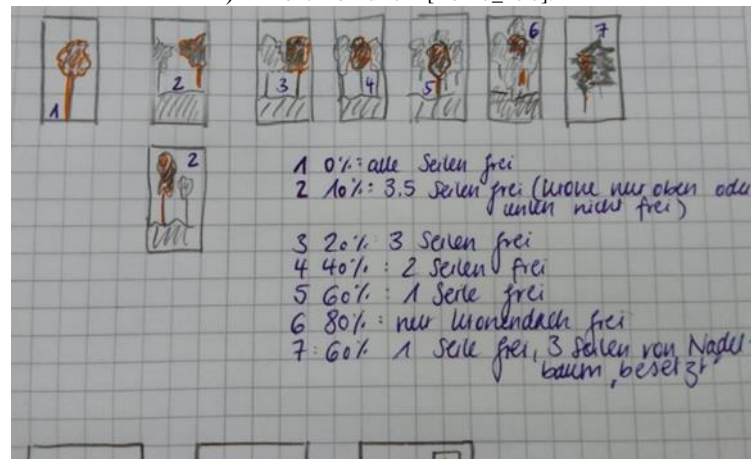 1
2
3
4
5
6
7
2
1 0%: alle Seiten frei
2 10%: 3.5 Seiten frei (Krone nur oben oder
unten nicht frei)
3 20%: 3 Seiten frei
4 40%: 2 Seiten frei
5 60%: 1 Seite frei
6 80%: nur Kronendach frei
7: 60% 1 Seite frei, 3 Seiten von Nadel-
baum "besetzt"